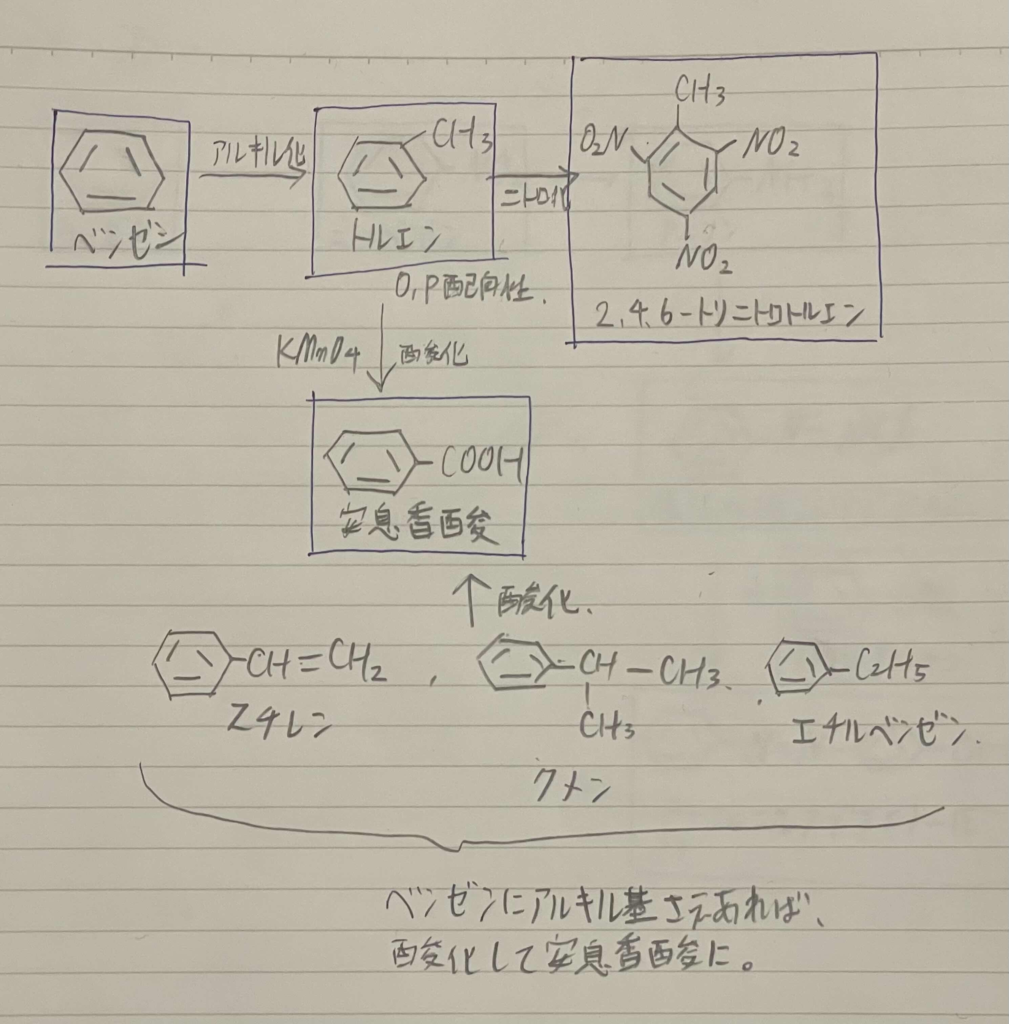 CH3
O2N
NO2
NO2
2,4,6-トリニトロトルエン
アルキル化
CH3
ニトロ化
ベンゼン
トルエン
O,P配向性.
KMnO4
酸化
COOH
安息香酸
↑酸化.
CH=CH2 ,
スチレン
CH-CH3.
CH3
クメン
C2H5
エチルベンゼン.
ベンゼンにアルキル基さえあれば、
酸化して安息香酸に。